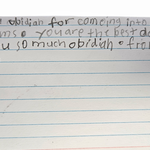 obidiah for comeing into
ms e you are the best d
u so much obidiah e fro